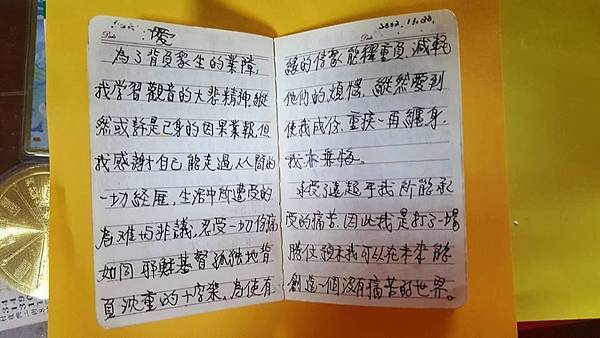 愛
為了背負眾生的業障,
我学習觀音的大悲精神,縱
然或許是己身的因果業報,但
我感謝自己能走過,人間的
一切經歷,生活中所遭受的
為难与非議,忍受一切伤痛
如同耶穌基督孤獨地背
負沈重的十字架,為使有
Date
2002.11.28.
緣的信眾能釋重負、減輕
他們的煩惱,縱然愛到
使我成伤、重挨一再纏身,
我不悔。
承受了遠超乎我所能承
受的痛苦,因此我是打了一場
勝仗,預示我可以在未來能
創造一個沒有痛苦的世界。